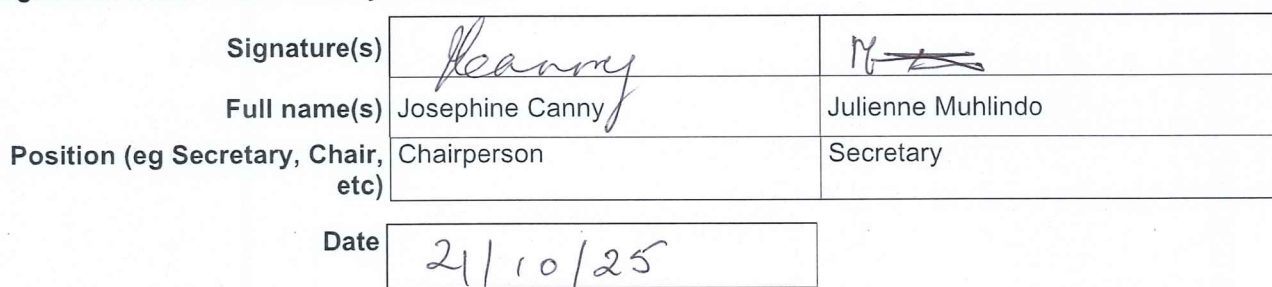 Signature(s)
Full name(s) Josephine Canny Julienne Muhlindo
Position (eg Secretary, Chair, Chairperson Secretary
etc)
Date 21/10/25